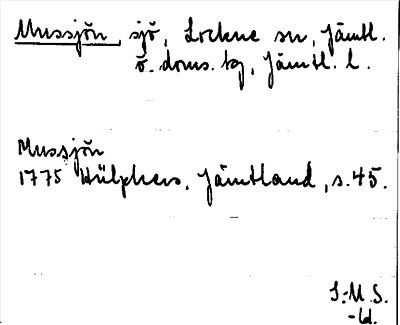 Mussjön, sjö, Lockne sn, Jämtl.
ö. doms. tg, Jämtl. l.
Mussjön
1775 Hülphers, Jämtland, s. 45.
I.M.S.
-61.